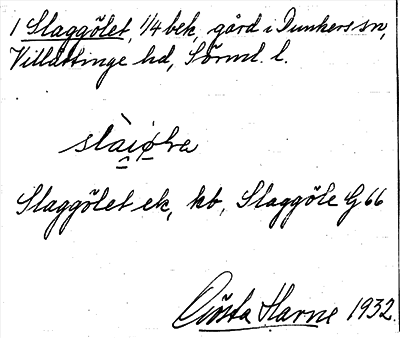 1 Slaggölet, 1/4 beh, gård i Dunkers sn,
Villåttinge hd, Sörml. l.
Slaggölet ek, kb, Slaggöle G 66
Gösta Harne 1932.